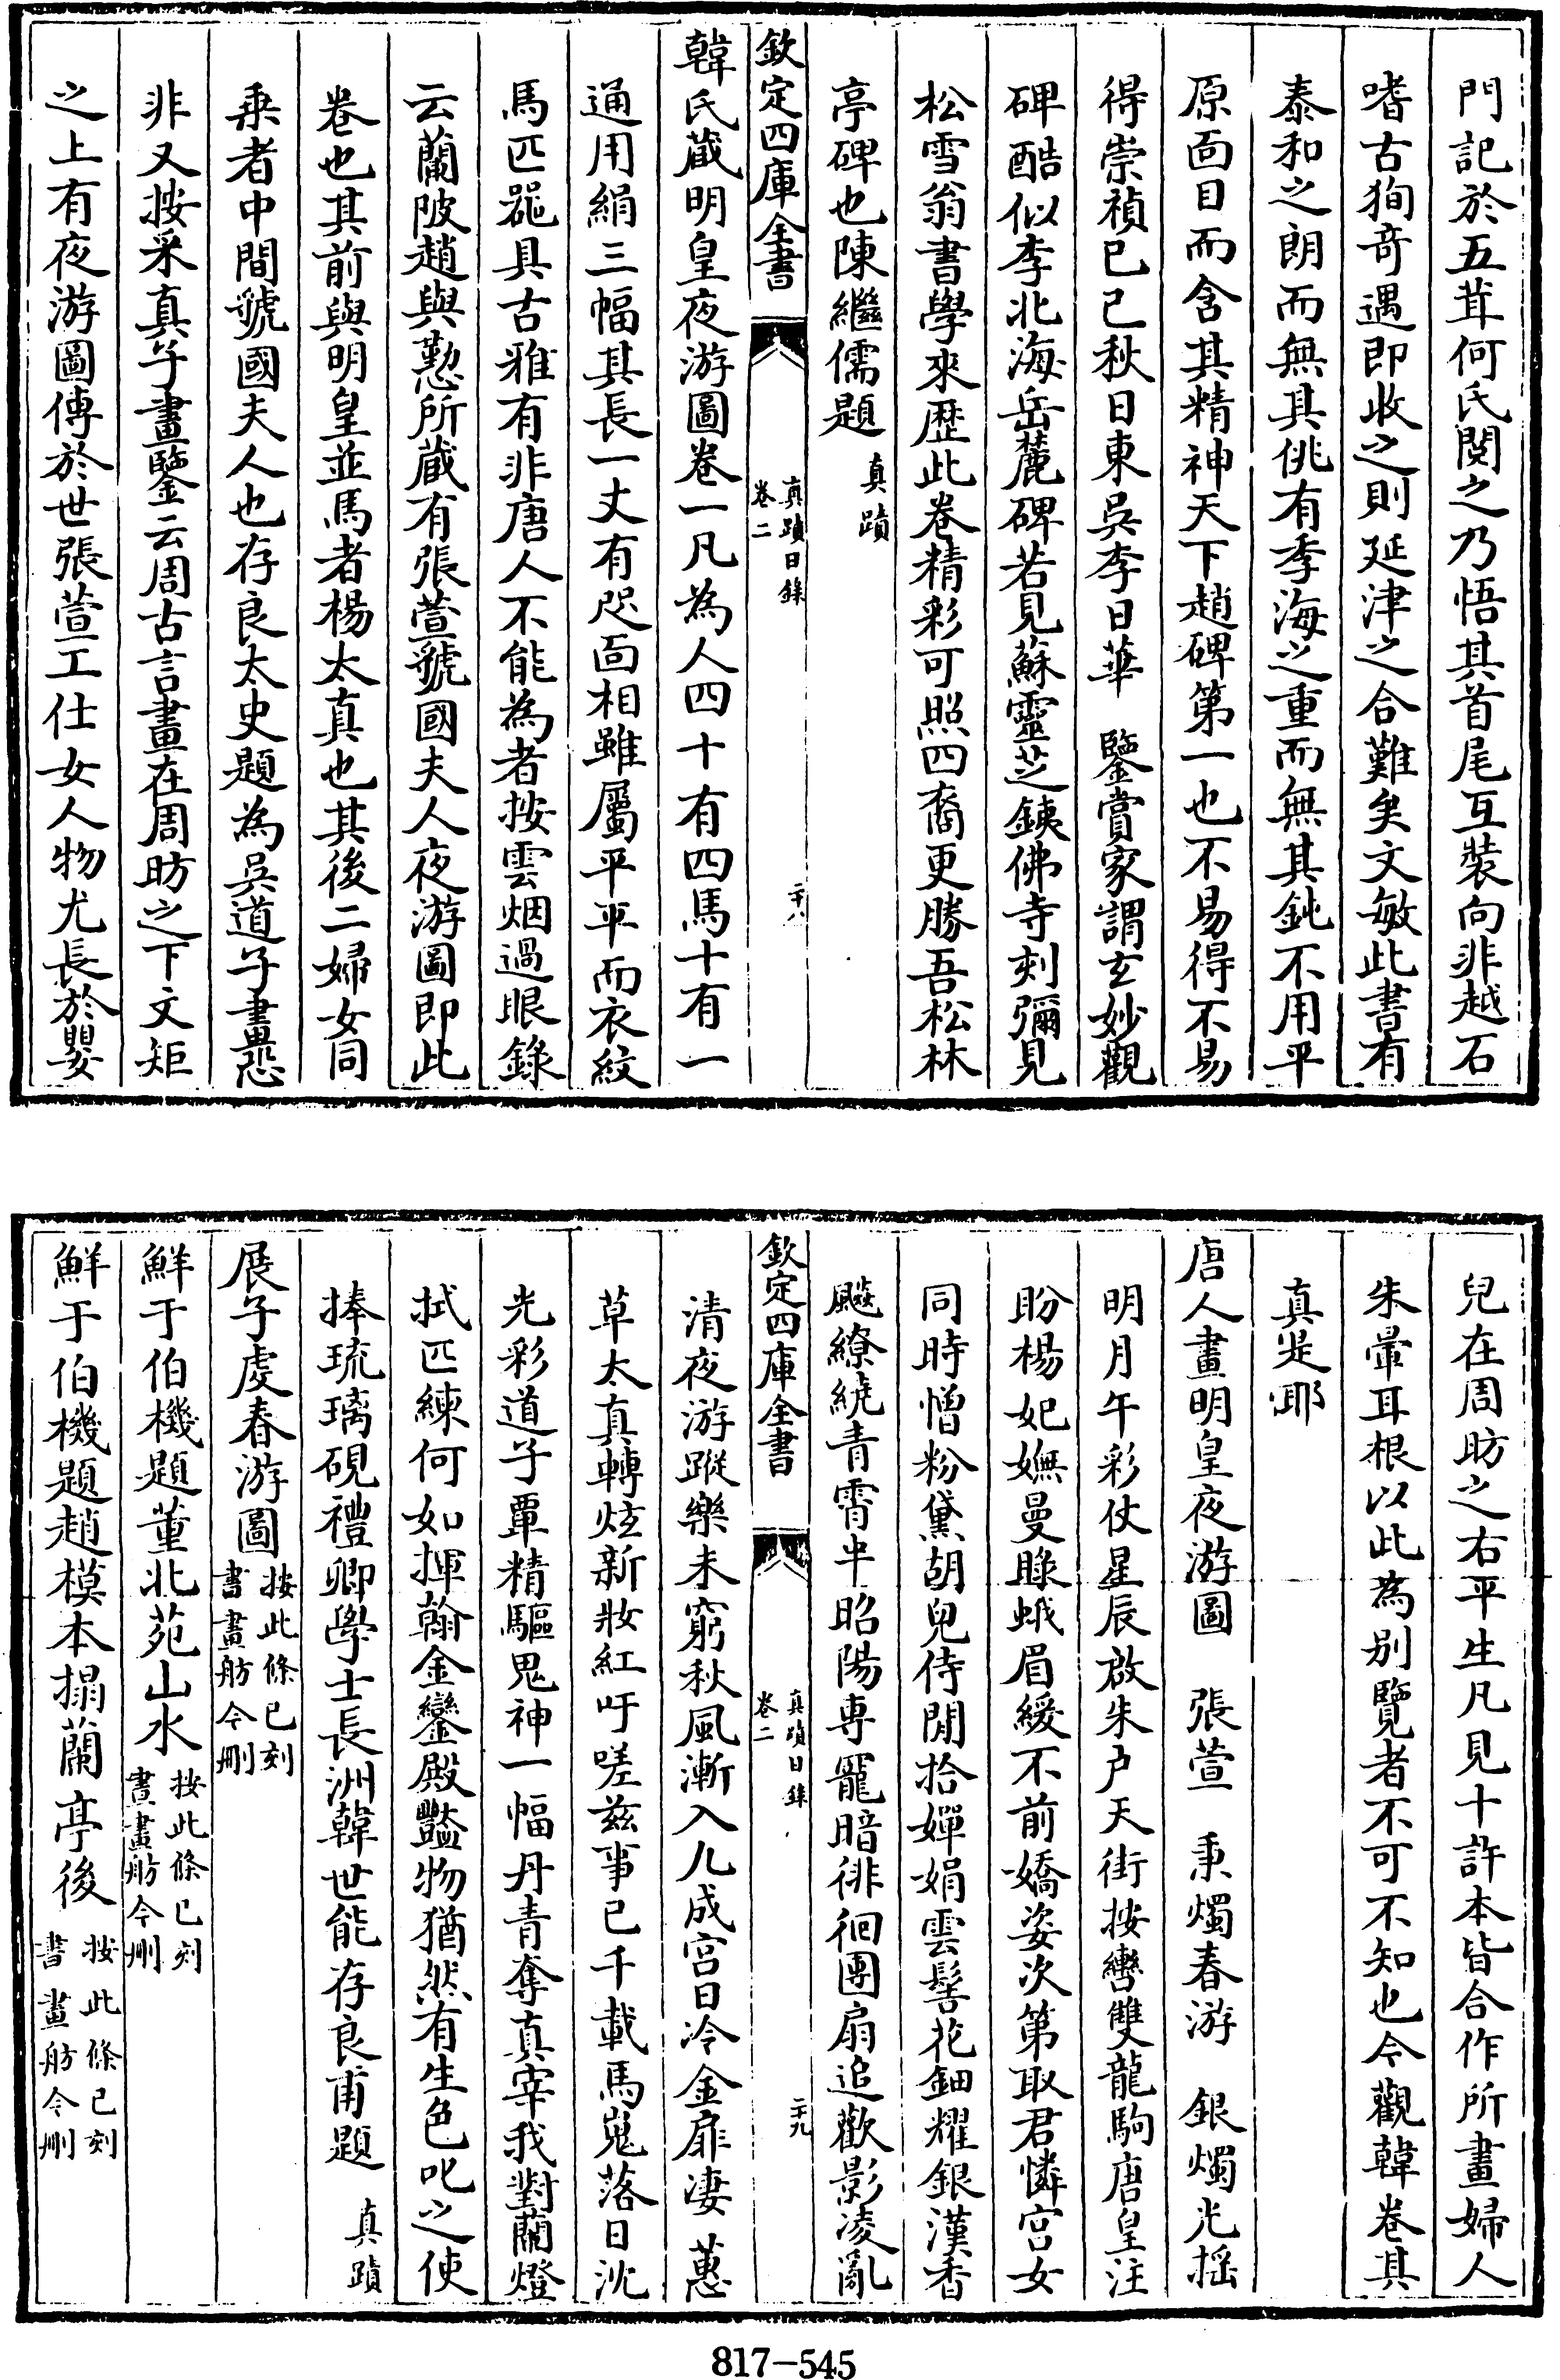 門記於五茸何氏閱之乃悟其首尾互裝向非越石
嗜古狥奇遇即收之則延津之合難矣文敏此書有
泰和之朗而無其佻有季海之重而無其鈍不用平
原面目而含其精神天下趙碑第一也不易得不易
得崇禎己巳秋日東吳李日華　鑒賞家謂玄妙觀
碑酷似李北海岳麓碑若見蘇靈芝鐵佛寺刻彌見
松雪翁書學來歴此卷精彩可照四裔更勝吾松林
亭碑也陳繼儒題　真蹟
欽定四庫全書　真蹟日錄
卷二　二十八
韓氏藏明皇夜游圖卷一凡為人四十有四馬十有一
通用絹三幅其長一丈有咫面相雖屬平平而衣紋
馬匹噐具古雅有非唐人不能為者按雲烟過眼錄
云蘭陂趙與懃所藏有張萱虢國夫人夜游圖即此
卷也其前與明皇並馬者楊太真也其後二婦女同
乘者中間虢國夫人也存良太史題為吳道子畫恐
非又按采真子畫鑒云周古言畫在周昉之下文矩
之上有夜游圖傳於世張萱工仕女人物尤長於嬰
兒在周昉之右平生凡見十許本皆合作所畫婦人
朱暈耳根以此為别覽者不可不知也今觀韓卷其
真是耶
唐人畫明皇夜游圖　張萱　秉燭春游　銀燭光揺
明月午彩仗星辰啟朱户天街按轡雙龍駒唐皇注
盼楊妃嫵曼睩蛾眉緩不前嬌姿次第取君憐宫女
同時憎粉黛胡兒侍閒拾嬋娟雲髻花鈿耀銀漢香
飈繚繞青霄半昭陽專寵暗徘徊團扇追歡影凌亂
欽定四庫全書　真蹟日錄
卷二　二十九
清夜游蹤樂未窮秋風漸入九成宫日冷金扉凄蕙
草太真轉炫新妝紅吁嗟兹事已千載馬嵬落日沈
光彩道子覃精驅鬼神一幅丹青奪真宰我對蘭燈
拭匹練何如揮翰金鑾殿豔物猶然有生色叱之使
捧琉璃硯禮卿學士長洲韓世能存良甫題　真蹟
展子虔春游圖　按此條已刻
書畫舫今刪
鮮于伯機題董北苑山水　按此條已刻
書畫舫今刪
鮮于伯機題趙模本搨蘭亭後　按此條已刻
書畫舫今刪
817-545